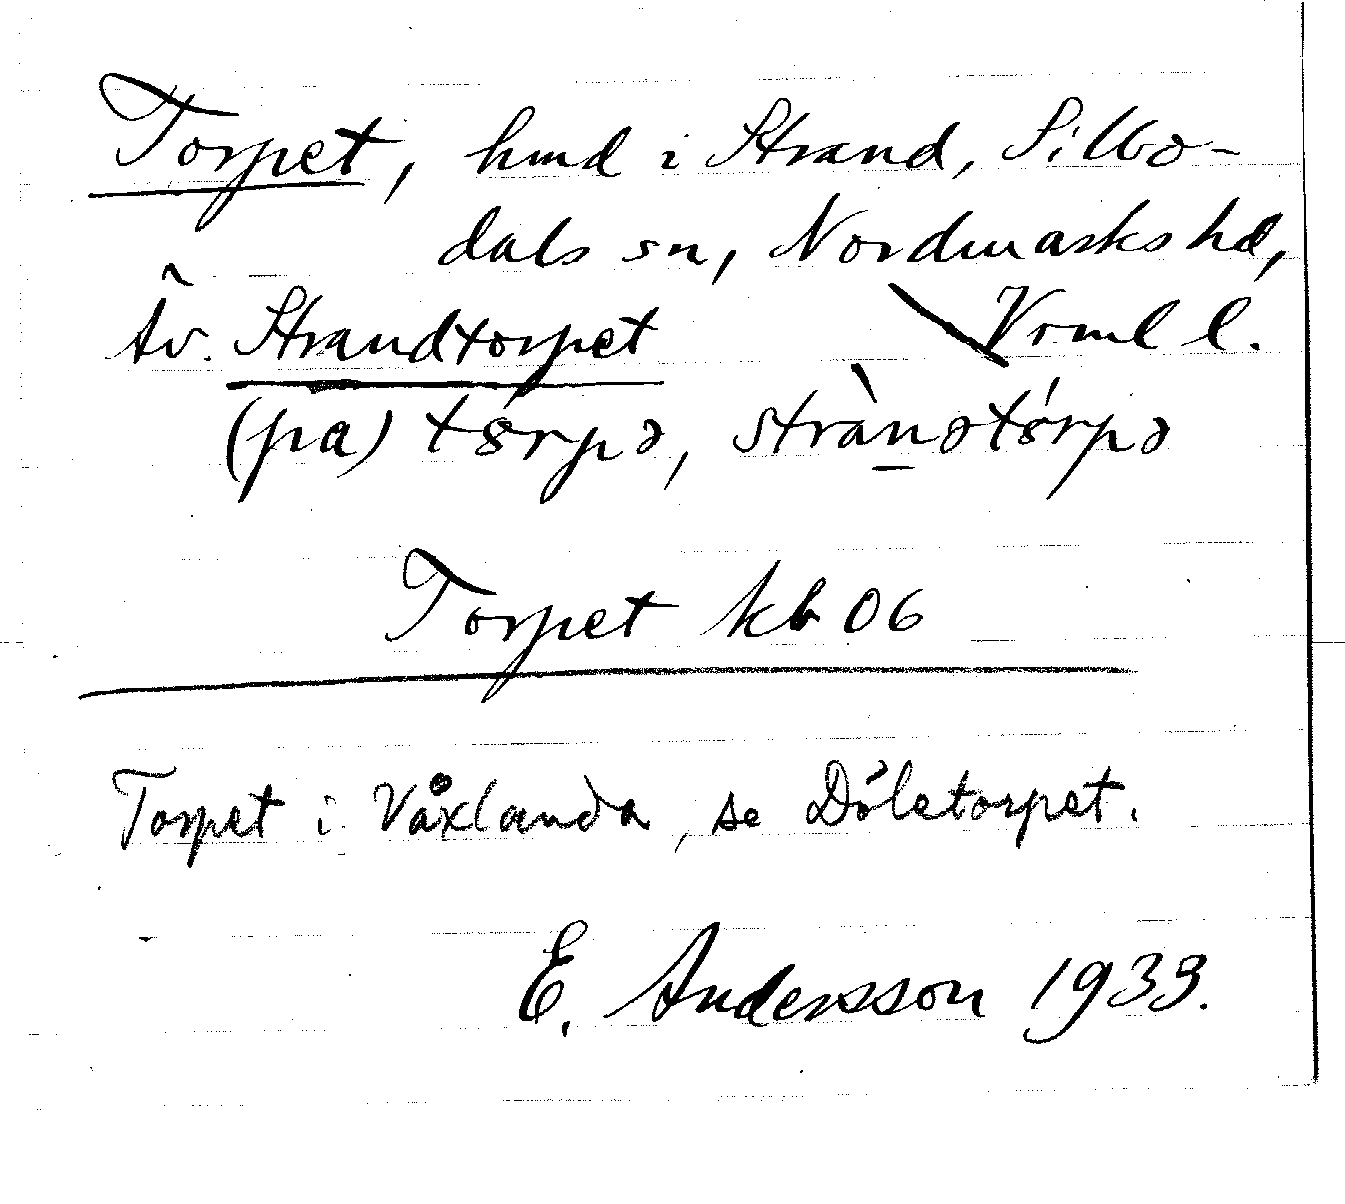 Torpet, hmd i Strand, Silbo-
dals sn, Nordmarks hd,
Äv. Strandtorpet Vrml l.
(pa) tɷrpə, strànətɷ́rpə
Torpet kb 06
Torpet i Våxlanda, se Döletorpet.
E. Andersson 1933.